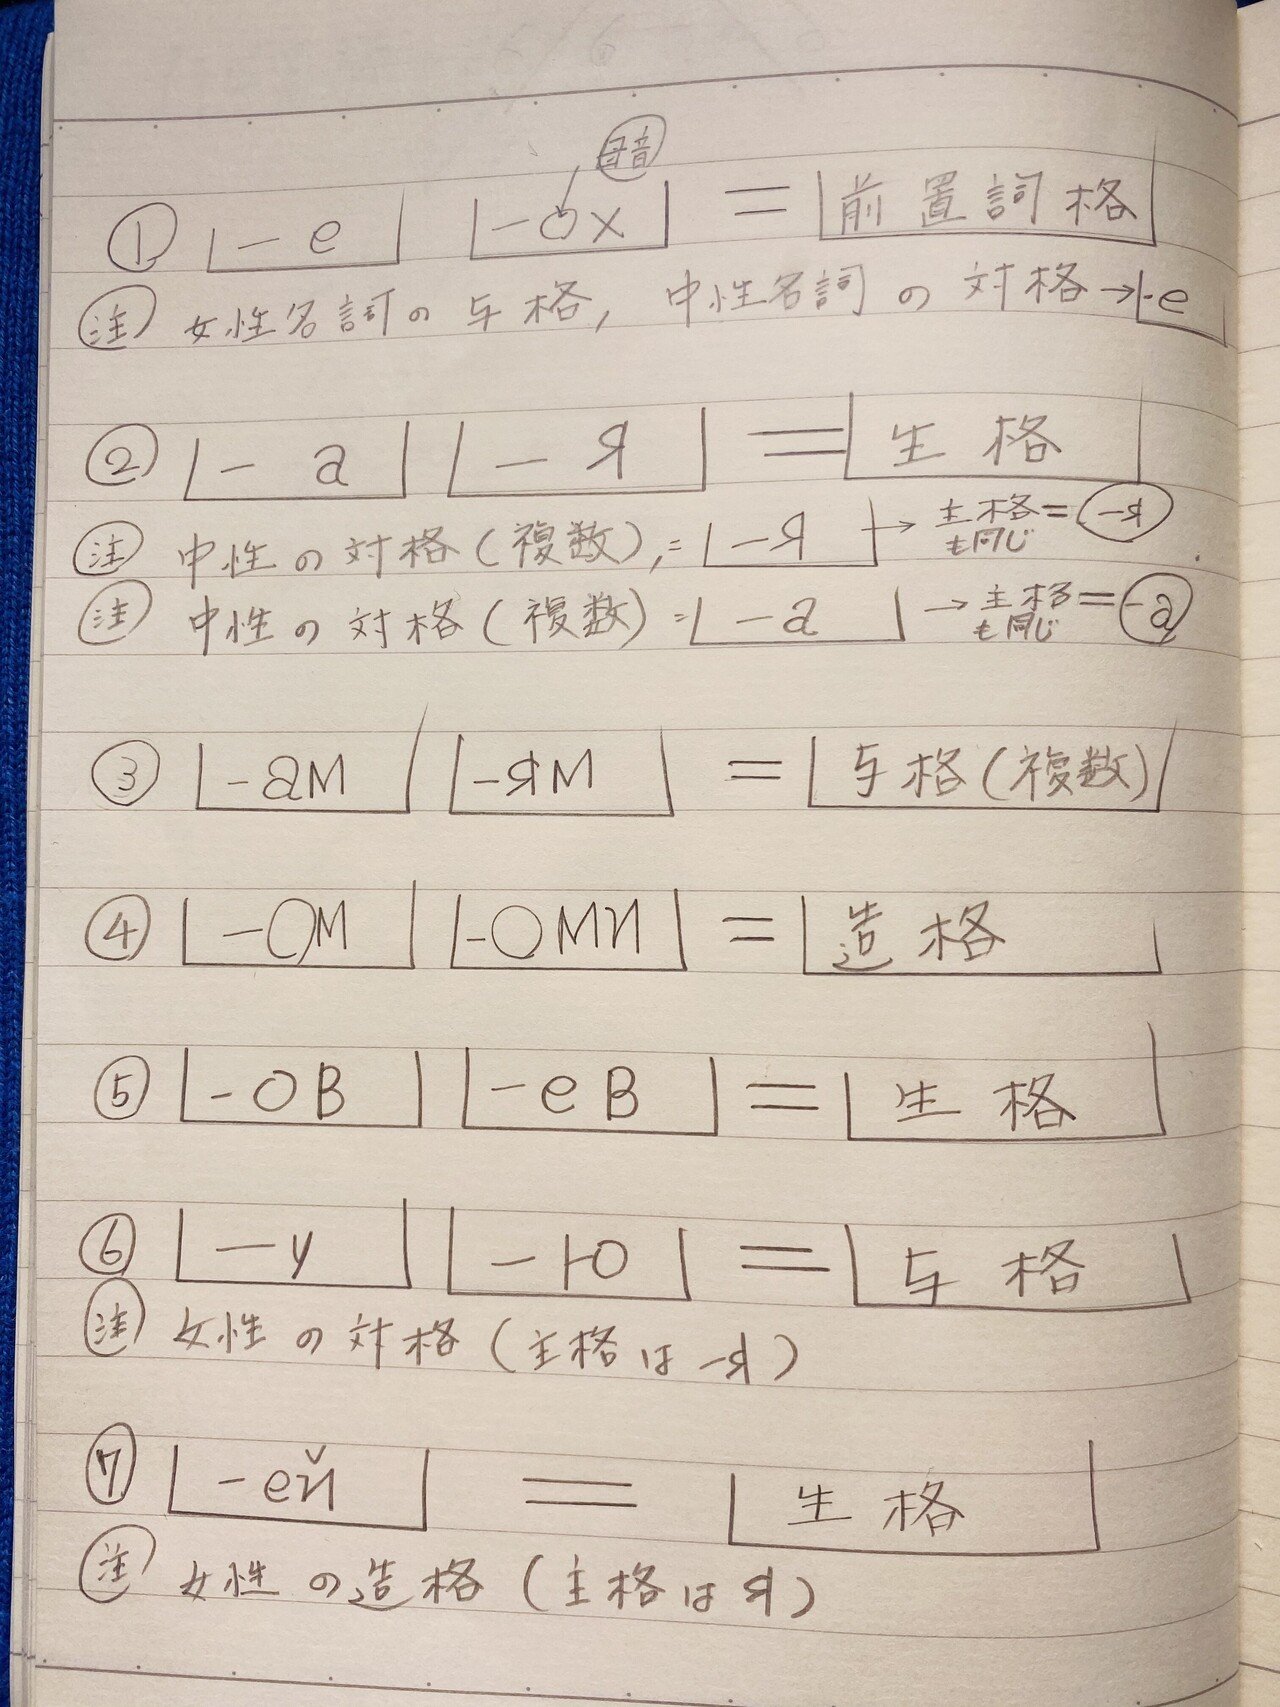 母音
① -e -ox = 前置詞格
注 女性名詞の与格, 中性名詞の対格→-e
② -a -я = 生格
注 中性の対格(複数),=-я→主格も同じ=-я
注 中性の対格(複数)=-a→主格も同じ=-a
③ -ам -ям = 与格(複数)
④ -ом -оми = 造格
⑤ -ов -ев = 生格
⑥ -у -ю = 与格
注 女性の対格(主格は-я)
⑦ -ей = 生格
注 女性の造格(主格はя)